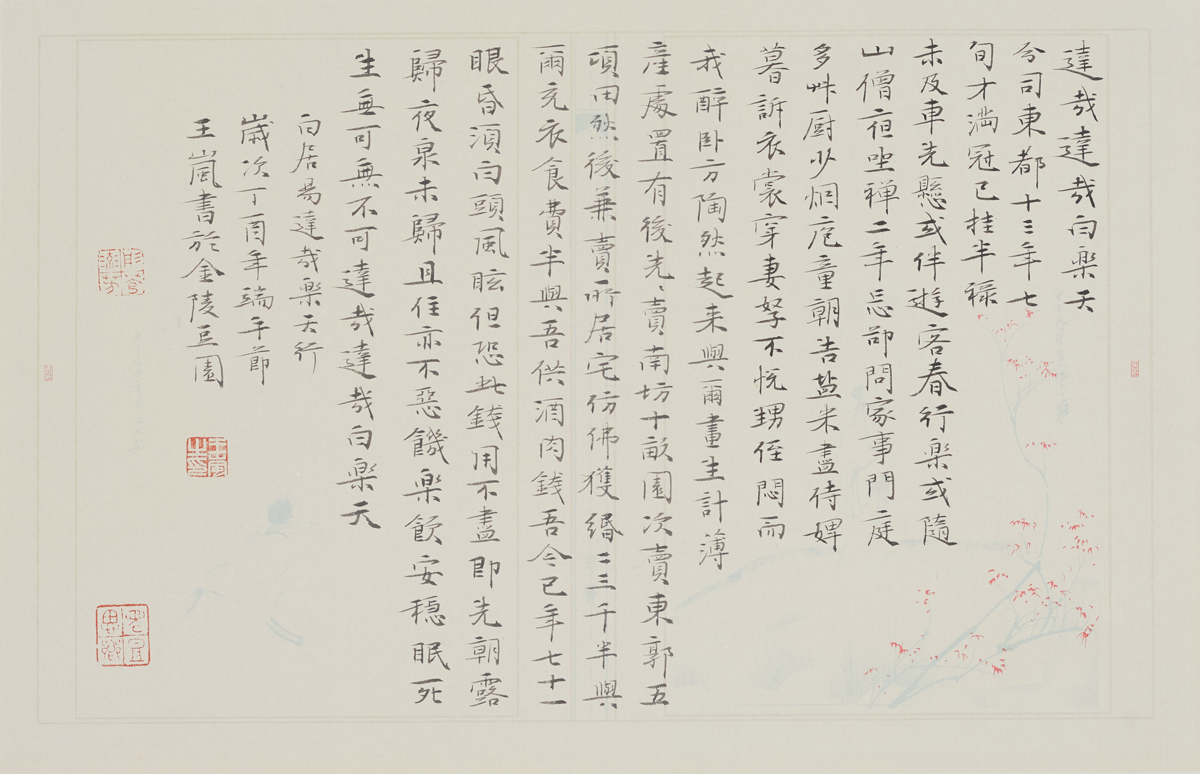 達哉達哉白楽天
分司東都十三年七
旬才満冠已挂半禄
未及車先懸或伴遊客春行楽或隨
山僧夜坐禅二年忘却問家事門庭
多艸厨少烟庖童朝告盐米盡侍婢
暮訴衣裳穿妻孥不悦甥侄悶而
我醉卧方陶然起来與爾畫生計薄
産處置有後先〻賣南坊十畝園次賣東郭五
頃田然後兼賣所居宅仿佛獲緡二三千半與
爾充衣食費半與吾供酒肉錢吾今已年七十一
眼昏須白頭風眩但恐此錢用不盡即先朝露
歸夜泉未歸且住亦不惡饑楽飲安穏眠死
生無可無不可達哉達哉白楽天
白居易達哉楽天行
歳次丁酉年端午節
王嵐書於金陵豆園